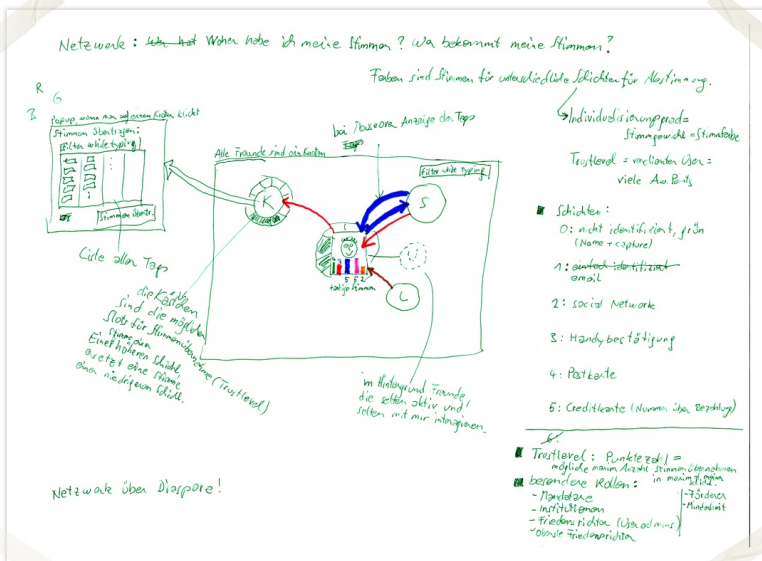 Netzwerk: Woher habe ich meine Stimmen? Wo bekommt meine Stimmen?
Farben sind Stimmen für unterschiedliche Schichten für Abstimmung.
R
G
B
Popup, wenn man auf einen Knoten klickt
Stimmen übertragen:
Filter while typing
Stimmen übertr.
Liste aller Tags
bei Mouseover Anzeige der Tags
Alle Freunde sind ein Knoten
Filter while typing
K
S
U
L
5 5 2
Stimmen
die Kästchen
sind die möglichen
Slots für Stimmenübernahme (Trustlevel)
Einer höheren Schicht
ersetzt eine Stimme
einer niedrigeren Schicht.
im Hintergrund Freunde,
die selten aktiv und
selten mit mir interagieren.
Individualisierungsgrad =
Stimmgewicht = Stimmfarbe
Trustlevel =
viele
Schichten:
0: nicht identifiziert, grün
(Name + capture)
1: einfach identifiziert
email
2: social Network
3: Handybestätigung
4: Postkarte
5: Creditkarte (Nummer über Bezahlung)
6.
Trustlevel: Punktezahl =
mögliche maxim Anzahl Stimmen übernehmen
besondere Rollen:
- Mandatare
- Institutionen
- Friedensrichter (Useradmins)
- Oberste Friedensrichter
- Förderer
Netzwerk über Diaspora!